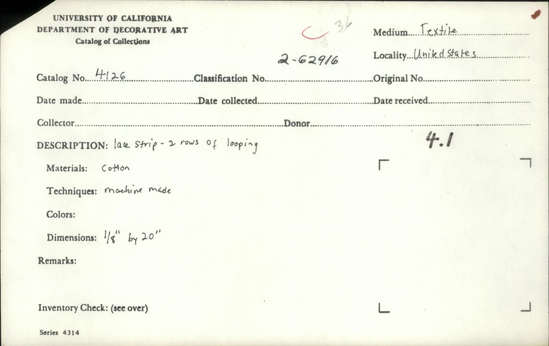 UNIVERSITY OF CALIFORNIA
DEPARTMENT OF DECORATIVE ART
Catalog of Collections
36
2-62916
Medium Textile
Locality United States
Catalog No. 4126 Classification No. Original No.
Date made Date collected Date received
Collector Donor
DESCRIPTION: lace strip - 2 rows of looping
4.1
Materials: Cotton
Techniques: machine made
Colors:
Dimensions: 1/8" by 20"
Remarks:
Inventory Check: (see over)
Series 4314